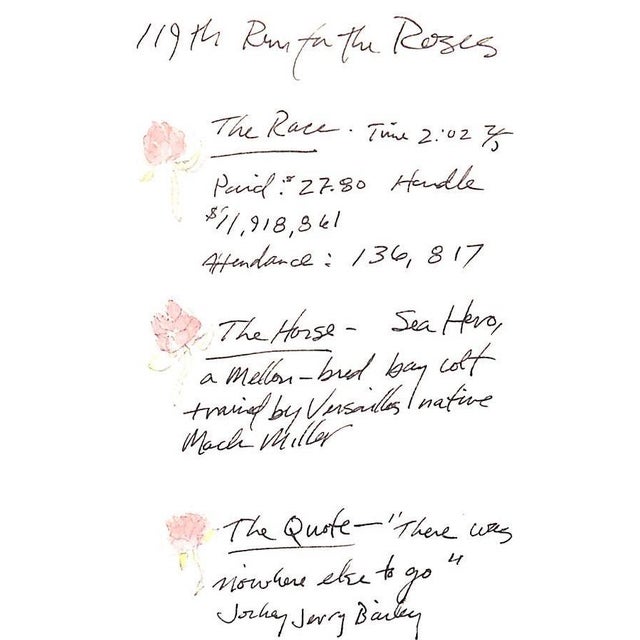 119th Run for the Roses
The Race. Time 2:02 2/5
Paid: $27.80 Handle
$11,918,861
Attendance: 136,817
The Horse - Sea Hero,
a Mellon-bred bay colt
trained by Versailles native
Mack Miller
The Quote - "There was
nowhere else to go"
Jockey Jerry Bailey